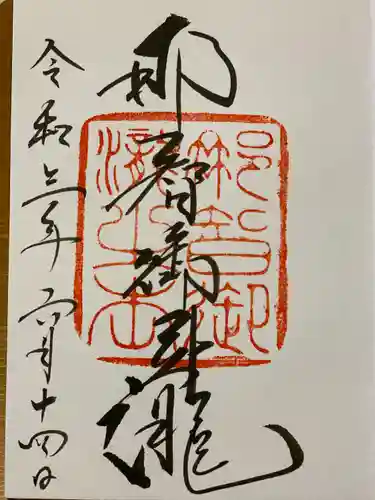 那智御瀧
令和三年六月十四日